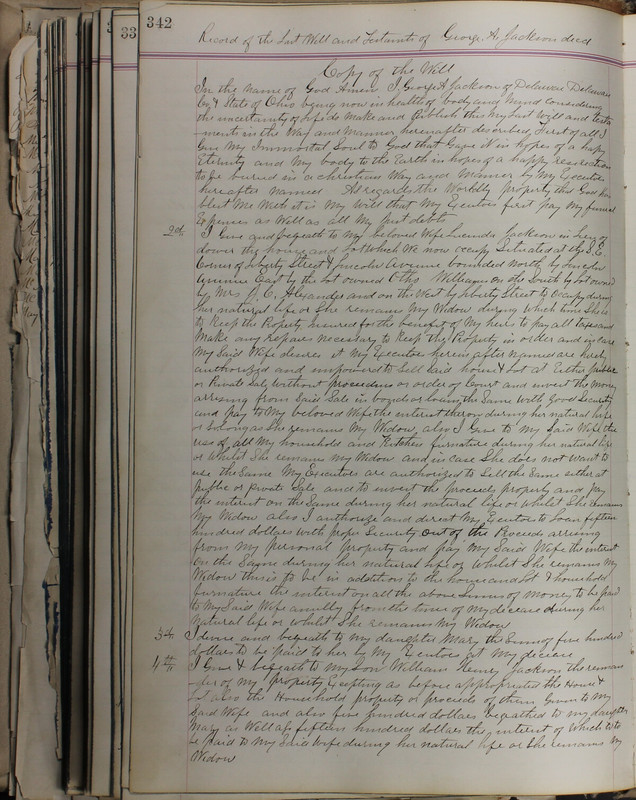 342
33
Record of the Last Will and Testament of George A. Jackson decd
Copy of the Will
In the name of God Amen I George A Jackson of Delaware Delaware
Co, & State of Ohio being now in health of body and Mind considering
the uncertainty of life do Make and Establish this My Last Will and testa
ment in the Way and Manner hereinafter described, First of all I
Give My Immortal Soul to God that Gave it in hopes of a happy
Eternity and My body to the Earth in hopes of a happy resurection
to be buried in a christian Way and Manner by My Executor
hereafter named As regards the Worldly property that God has
blest Me With it is My will that My Exectors first pay My funeral
Expenses as Well as all My just debts
2d I Give and beqeath to My beloved Wife Lucinda Jackson in lieu of
dower the house and Lot Which We now occupy Situated at the S. E
Corner of Liberty Street & Lincoln Avenue bounded North by Lincoln
Avenue East by the Lot owned Otho Williams on the South by Lot owned
by Mrs J. C. Alexander and on the West by Liberty Street to Occupy during
her natural life or She remains My Widow during which time She is
to Keep the Property insured for the benefit of My heirs to pay all taxes and
Make any repairs necessary to Keep the Property in order and in case
My Said Wife desires it My Executors herein after named are hereby
authorized and empowered to Sell Said house & Lot at Either Public
or Private Sale Without proceedure or order of Court and invest the Money
arising from Said Sale in bonds or loaning the Same With Good Security
and pay to My beloved Wife the interest theron during her natural life
or So long as She remains My Widow, also I Give to My Said Wife the
use of all My household and Kitchen furnature during her natural life
or Whilst She remains My Widow and in case She does not want to
use the Same My Executors are authorized to Sell the Same either at
public or private Sale and to invest the proceeds property and pay
the interest on the Same during her natural life or whilst She remains
My Widow also I authorize and direct My Exector to Loan fifteen
hundred dollars with proper Security out of the Proceeds arising
from My personal property and pay My Said Wife the interest
On the Same during her natural life or Whilst She remains My
Widow this is to be in addition to the house and Lot & household
furnature the interest on all the above Sums of money to be paid
to My Said Wife anually from the time of my decease during her
natural life or Whilst She remains My Widow
3d I devise and beqeath to my daughter Mary the Sum of five hundred
dollars to be paid to her by My Exectors at My decease
4th I Give & beqeath to my Son William Henry Jackson the remain
der of my property Excepting as before appropriated the House &
Lot also the Household property or proceeds of them given to My
Said Wife and also five hundred dollars beqeathed to my daughter
Mary as Well as fifteen hundred dollars the interest of which is to
be paid to My Said Wife during her natural life or She remains My
Widow